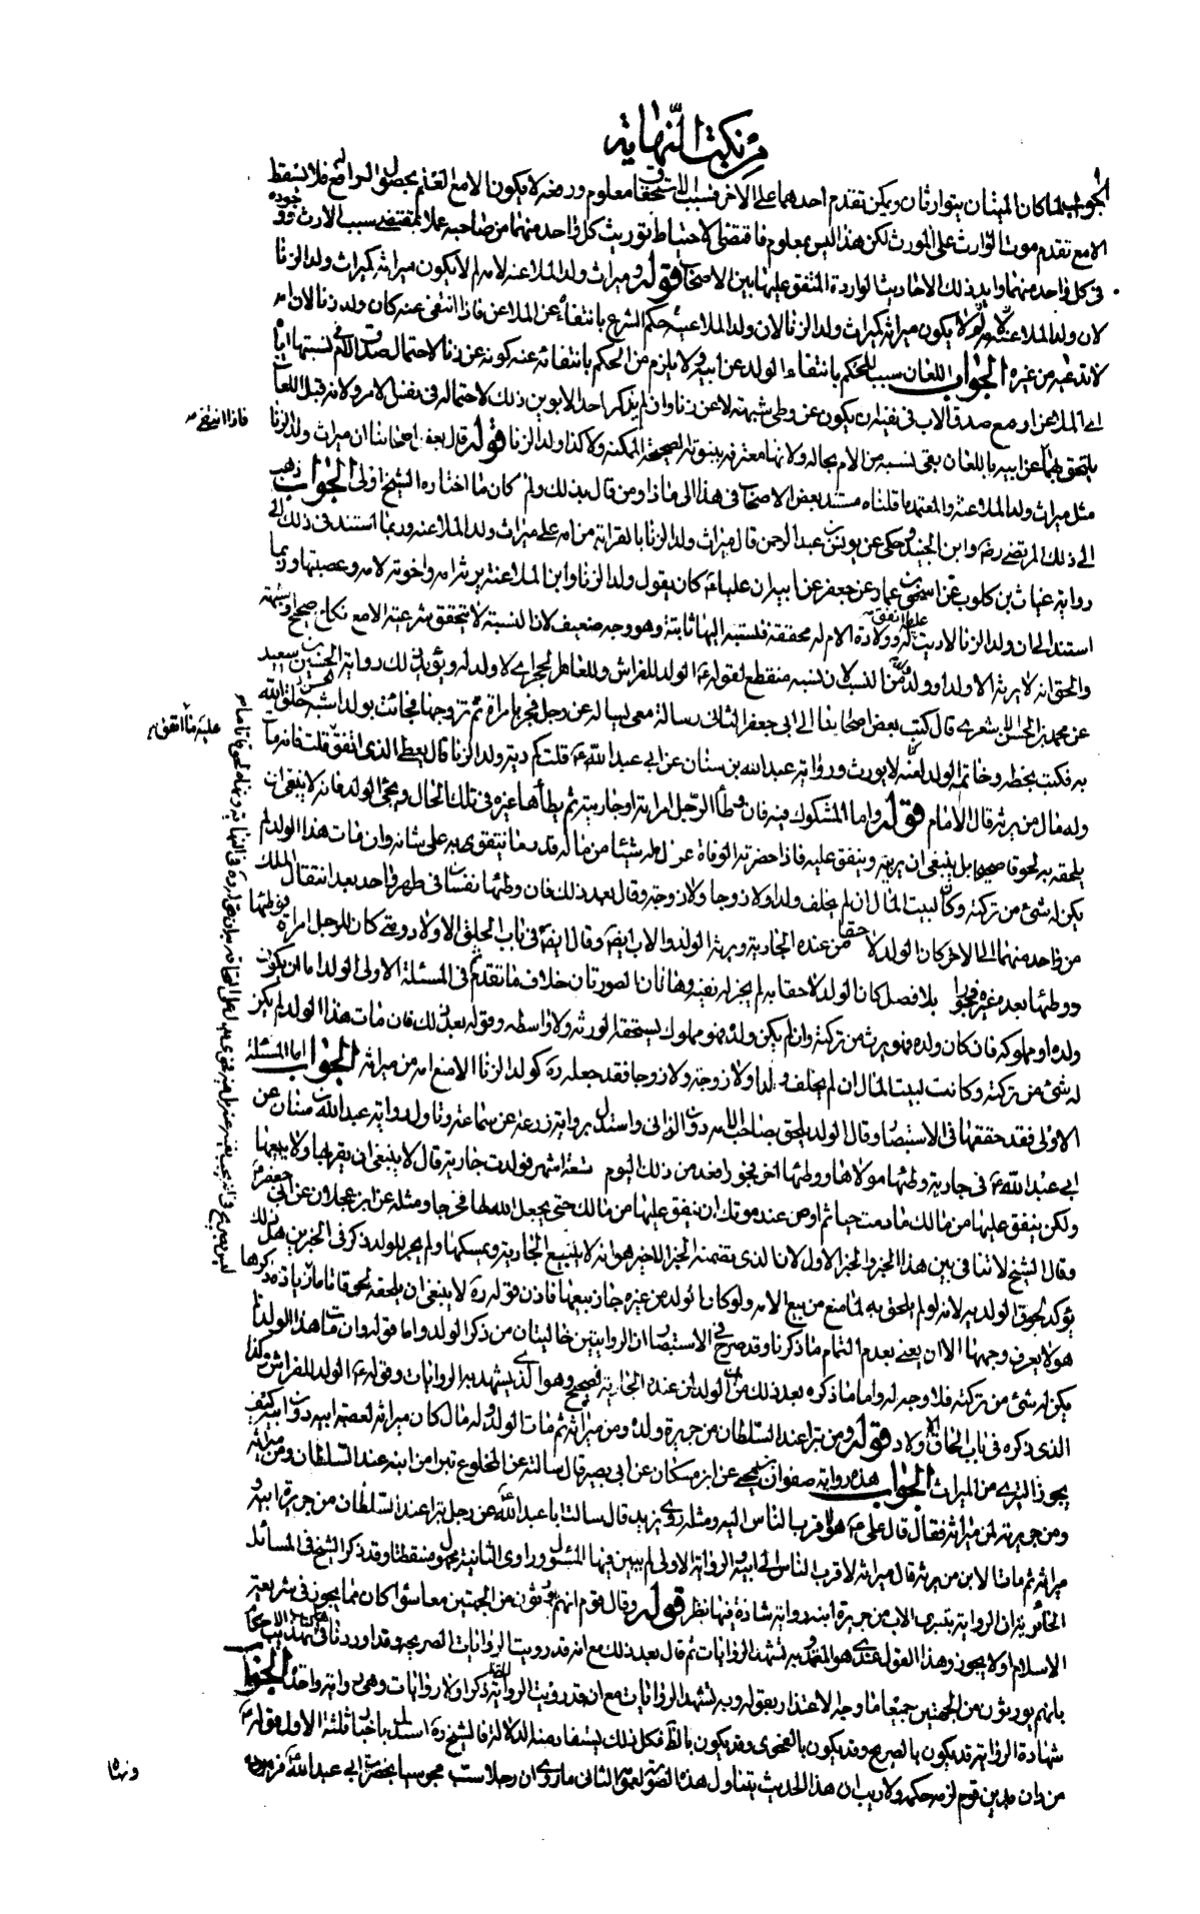 من نكت النهاية
الجواب لما كان الميتان يتوارثان ويمكن تقدم احدهما على الاخر فسبب الاستحقاق معلوم ورفعه لا يكون الا مع العلم بحصول الرافع فلا يسقط
الا مع تقدم موت الوارث على المورث لكن هذا ليس بمعلوم فاقتضى الاحتياط توريث كل واحد منهما من صاحبه عملا بمقتضى سبب الارث
في كل واحد منهما وايد ذلك الاحاديث الواردة المتفق عليها بين الاصحاب قوله وميراث ولد الملاعنة لامه لا يكون ميراثه كميراث ولد الزنا
لان ولد الملاعنة لا يكون ميراثه كميراث ولد الزنا لان ولد الملاعنة حكم الشرع بانتفائه عن الملاعن فاذا انتفى عنه كان ولد زنا لان امه
لا تدعيه من غيره الجواب اللعان سبب للحكم بانتفاء الولد عن ابيه ولا يلزم من الحكم بانتفائه عنه كونه عن زنا لاحتمال صدق الام في نسبتها اياه
الى الملاعن او مع صدق الاب في نفيه ان يكون عن وطى شبهة لا عن زنا وان لم يذكر احد الابوين ذلك لاحتماله في نفس الامر ولانه قبل اللعان
فاذا انتفى
يلتحق بهما عن ابيه باللعان بقى نسبه من الام بحاله ولانها معترفة ببنوته الصحيحة الممكنة ولا كذا ولد الزنا قوله قال بعض اصحابنا ان ميراث ولد الزنا
مثل ميراث ولد الملاعنة والمعتمد ما قلناه مستند بعض الاصحاب في هذا الى ماذا ومن قال بذلك ولم كان ما اختاره الشيخ اولى الجواب ذهب
الى ذلك المرتضى وابن الجنيد وحكى عن يونس بن عبد الرحمن قال ميراث ولد الزنا بالقرابة من امه على ميراث ولد الملاعنة وربما استند في ذلك الى
رواية غياث بن كلوب عن اسحق بن عمار عن جعفر عن ابيه ان عليا كان يقول ولد الزنا وابن الملاعنة يرثه امه واخوته لامه وعصبتها وربما
استند الى ان ولد الزنا لا ريب وولادة الام له محققة فنسبته اليها ثابتة وهو وجه ضعيف لان النسبة لا تتحقق شرعية الا مع نكاح صحيح او شبهة
والحق انه لا يرثه الا ولده او ولد ولده لان نسبه منقطع لقوله الولد للفراش وللعاهر الحجر اى لا ولد له ويؤيد ذلك رواية الحسين بن سعيد
عن محمد بن الحسن الاشعرى قال كتب بعض اصحابنا الى ابى جعفر الثانى رسالة معى يساله عن رجل فجر بامراة ثم تزوجها فجاءت بولد اشبه خلق الله
به فكتب بخطه وخاتمه الولد لغية لا يورث ورواية عبد الله بن سنان عن ابى عبد الله قلت كم دية ولد الزنا قال يعطى الذى انفق قلت فانه مات
عليه ما انفق
وله مال من يرثه قال الامام قوله واما المشكوك فيه فان وطأ الرجل امراته او جاريته ثم يطأها غيره في تلك الحال ويجى الولد فانه لا ينبغى ان
يلحقه به لحوقا صحيحا بل ينبغى ان يربيه وينفق عليه فاذا حضرته الوفاة عزل له شيئا من ماله قدر ما يتقوى به على شانه وان مات هذا الولد لم
يكن له شئ من تركته وكان لبيت المال ان لم يخلف ولدا ولا زوجا ولا زوجة وقال بعد ذلك فان وطئها نفسان في طهر واحد بعد انتقال الملك
من واحد منهما الى الاخر كان الولد لاحقا بمن عنده الجارية ويرثه الولد والاب ايضا وقال ايضا في باب الحاق الاولاد ومتى كان للرجل امراة فوطئها
ووطئها بعده غيره فجورا بلا فصل كان الولد لاحقا به لم يجز له نفيه وهاتان الصورتان خلاف ما تقدم في المسئلة الاولى الولد اما ان يكون
ولده او مملوكه فان كان ولده فهو يرث من تركته وان لم يكن ولده فهو مملوك يستحقه الورثة ولا واسطة وقوله بعد ذلك فان مات هذا الولد لم يكن
له شئ من تركته وكانت لبيت المال ان لم يخلف ولدا ولا زوجة ولا زوجا فقد جعله كولد الزنا اذ منع امه من ميراثه الجواب اما المسئلة
الاولى فقد حققها في الاستبصار وقال الولد يلحق بصاحب الامة دون الزانى واستدل برواية زرعة عن سماعة وتاول رواية عبد الله بن سنان عن
ابى عبد الله في جارية وطئها مولاها ووطئها اخر فجورا بعده من ذلك اليوم تسعة اشهر فولدت جارية قال لا ينبغى ان يقربها ولا يبيعها
ولكن ينفق عليها من مالك ما دمت حيا ثم اوص عند موتك ان ينفق عليها من مالك حتى يجعل الله لها مخرجا ومثله عن ابن عجلان عن ابى جعفر
وقال الشيخ لا تنافى بين هذا الخبر والخبر الاول لان الذى تضمنه الخبر الاخير هو انه لا يبيع الجارية ويمسكها ولم يجر للولد ذكر في الخبرين بل ذلك
يؤكد لحوق الولد به لانه لو لم يلحق به لما منع من بيع الامة ولو كان الولد من غيره جاز بيعها فاذن قوله لا ينبغى ان يلحقه لحوقا تاما زيادة ذكرها
هو لا يعرف وجهها الا ان يعنى بعدم التمام ما ذكرنا وقد صرح في الاستبصار ان الروايتين خاليتان من ذكر الولد واما قوله وان مات هذا الولد لم
يكن له شئ من تركته فلا وجه له واما ما ذكره بعد ذلك من ان الولد لمن عنده الجارية فصحيح وهو الذى يشهد به الروايات وقوله الولد للفراش وكذا
الذى ذكره في باب الحاق الاولاد قوله ومن تبرا عند السلطان من جريرة ولده ومن ميراثه ثم مات الولد وله مال كان ميراثه لعصبة ابيه دون ابيه كيف
يجوز التبرى من الميراث الجواب هذه رواية صفوان بن يحيى عن ابن مسكان عن ابى بصير قال سالته عن المخلوع تبرا من ابنه عند السلطان ومن ميراثه
ومن جريرته لمن ميراثه فقال قال على هو لاقرب الناس اليه ومثله روى بريد قال سالت ابا عبد الله عن رجل تبرا عند السلطان من جريرة ابنه و
ميراثه ثم مات الابن من يرثه قال ميراثه لاقرب الناس الى ابيه والرواية الاولى لم يبين فيها المسئول وراوى الثانية مجهول فسقطتا وقد ذكر الشيخ في المسائل
الحائرية ان الرواية بتبرى الاب من جريرة ابنه رواية شاذة فيها نظر قوله وقال قوم انهم يورثون من الجهتين معا سواء كان مما يجوز في شريعة
الاسلام او لا يجوز وهذا القول عندى هو المعتمد وبه تشهد الروايات ثم قال بعد ذلك مع انه قد رويت الروايات الصريحة وقد اوردناها في تهذيب الاحكام
بانهم يورثون من الجهتين جميعا ما وجه الاعتذار بقوله وبه تشهد الروايات مع انه قد رويت الرواية ذكر اولا روايات وهى رواية واحدة الجواب
شهادة الرواية قد يكون بالصريح وقد يكون بالفحوى وقد يكون بالظاهر فكل ذلك يستفاد منه الدلالة فالشيخ استدل باخبار ثلثة الاول قوله
من دان بدين قوم لزمه حكمه ولا ريب ان هذا الحديث يتناول هذه الصورة لعمومه الثانى ما روى ان رجلا سب مجوسيا بحضرة ابى عبد الله فزبره
ونهاه